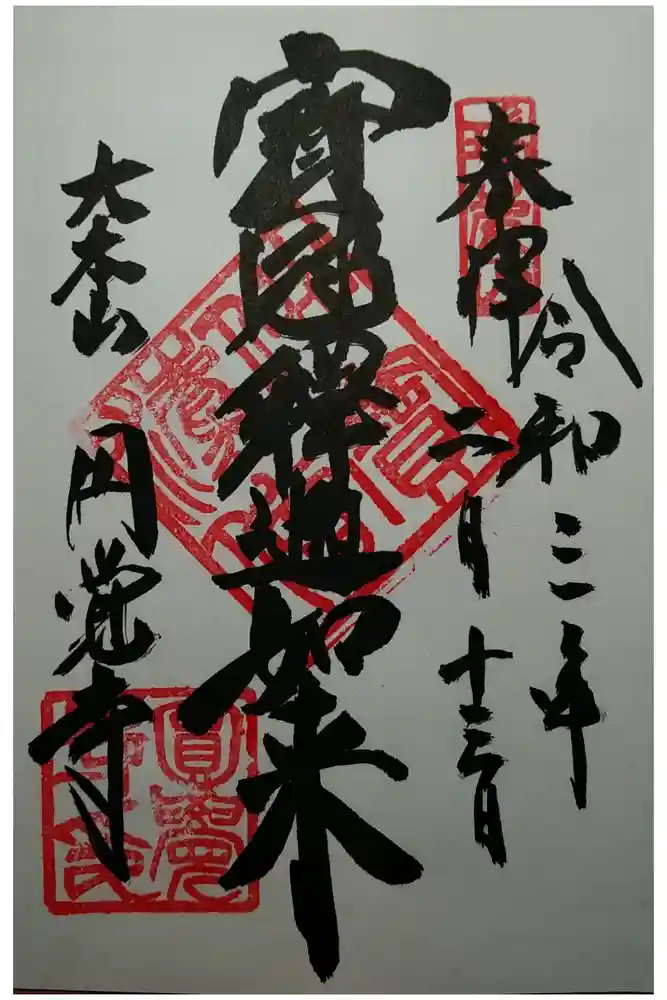 奉拝
令和三年
二月十三日
寶冠釋迦如来
大本山 円覚寺